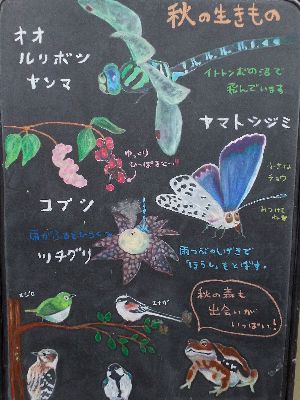 秋の生きもの
オオ
ルリボシ
ヤンマ
イトトンボの沼で
飛んでいます
ヤマトシジミ
ゆっくり
ひっぱると…!!
小さな
チョウ
みつけてね
コブシ
雨がふるとひらく
ツチグリ
雨つぶのしげきで
ほうしをとばす。
メジロ
エナガ
秋の森も
出会いが
いっぱい!